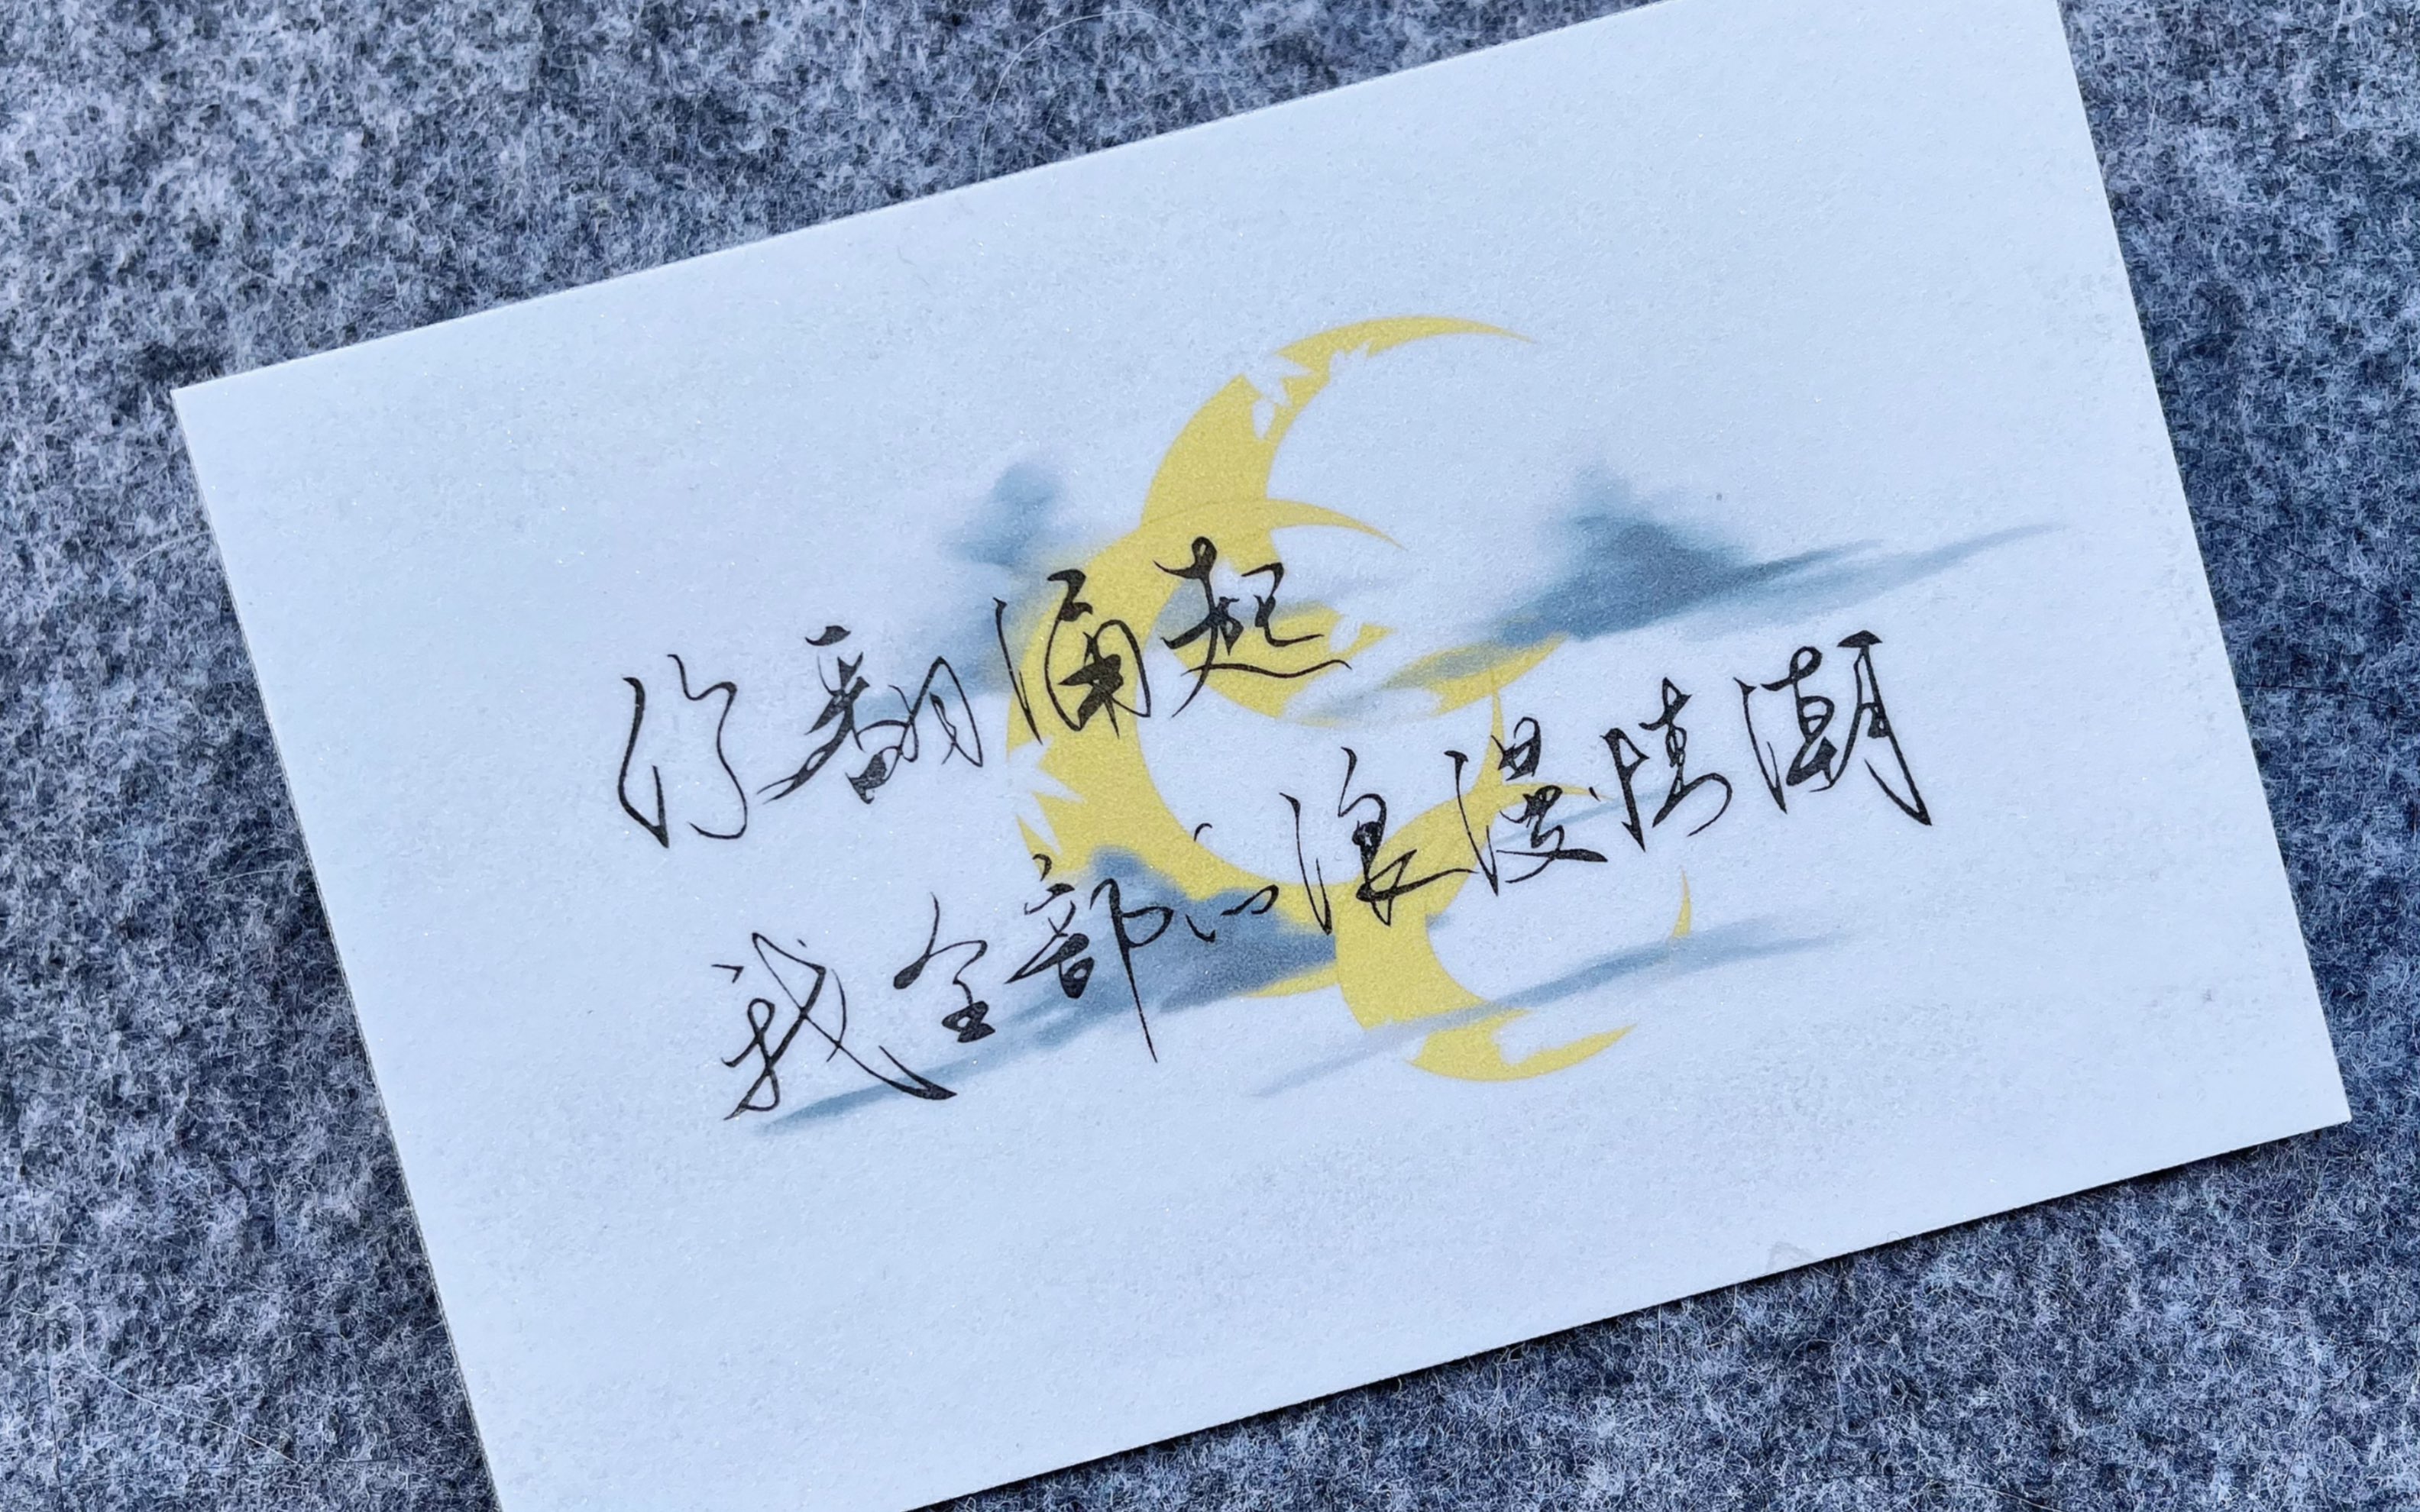 你翻涌起
我全部的浪漫情潮